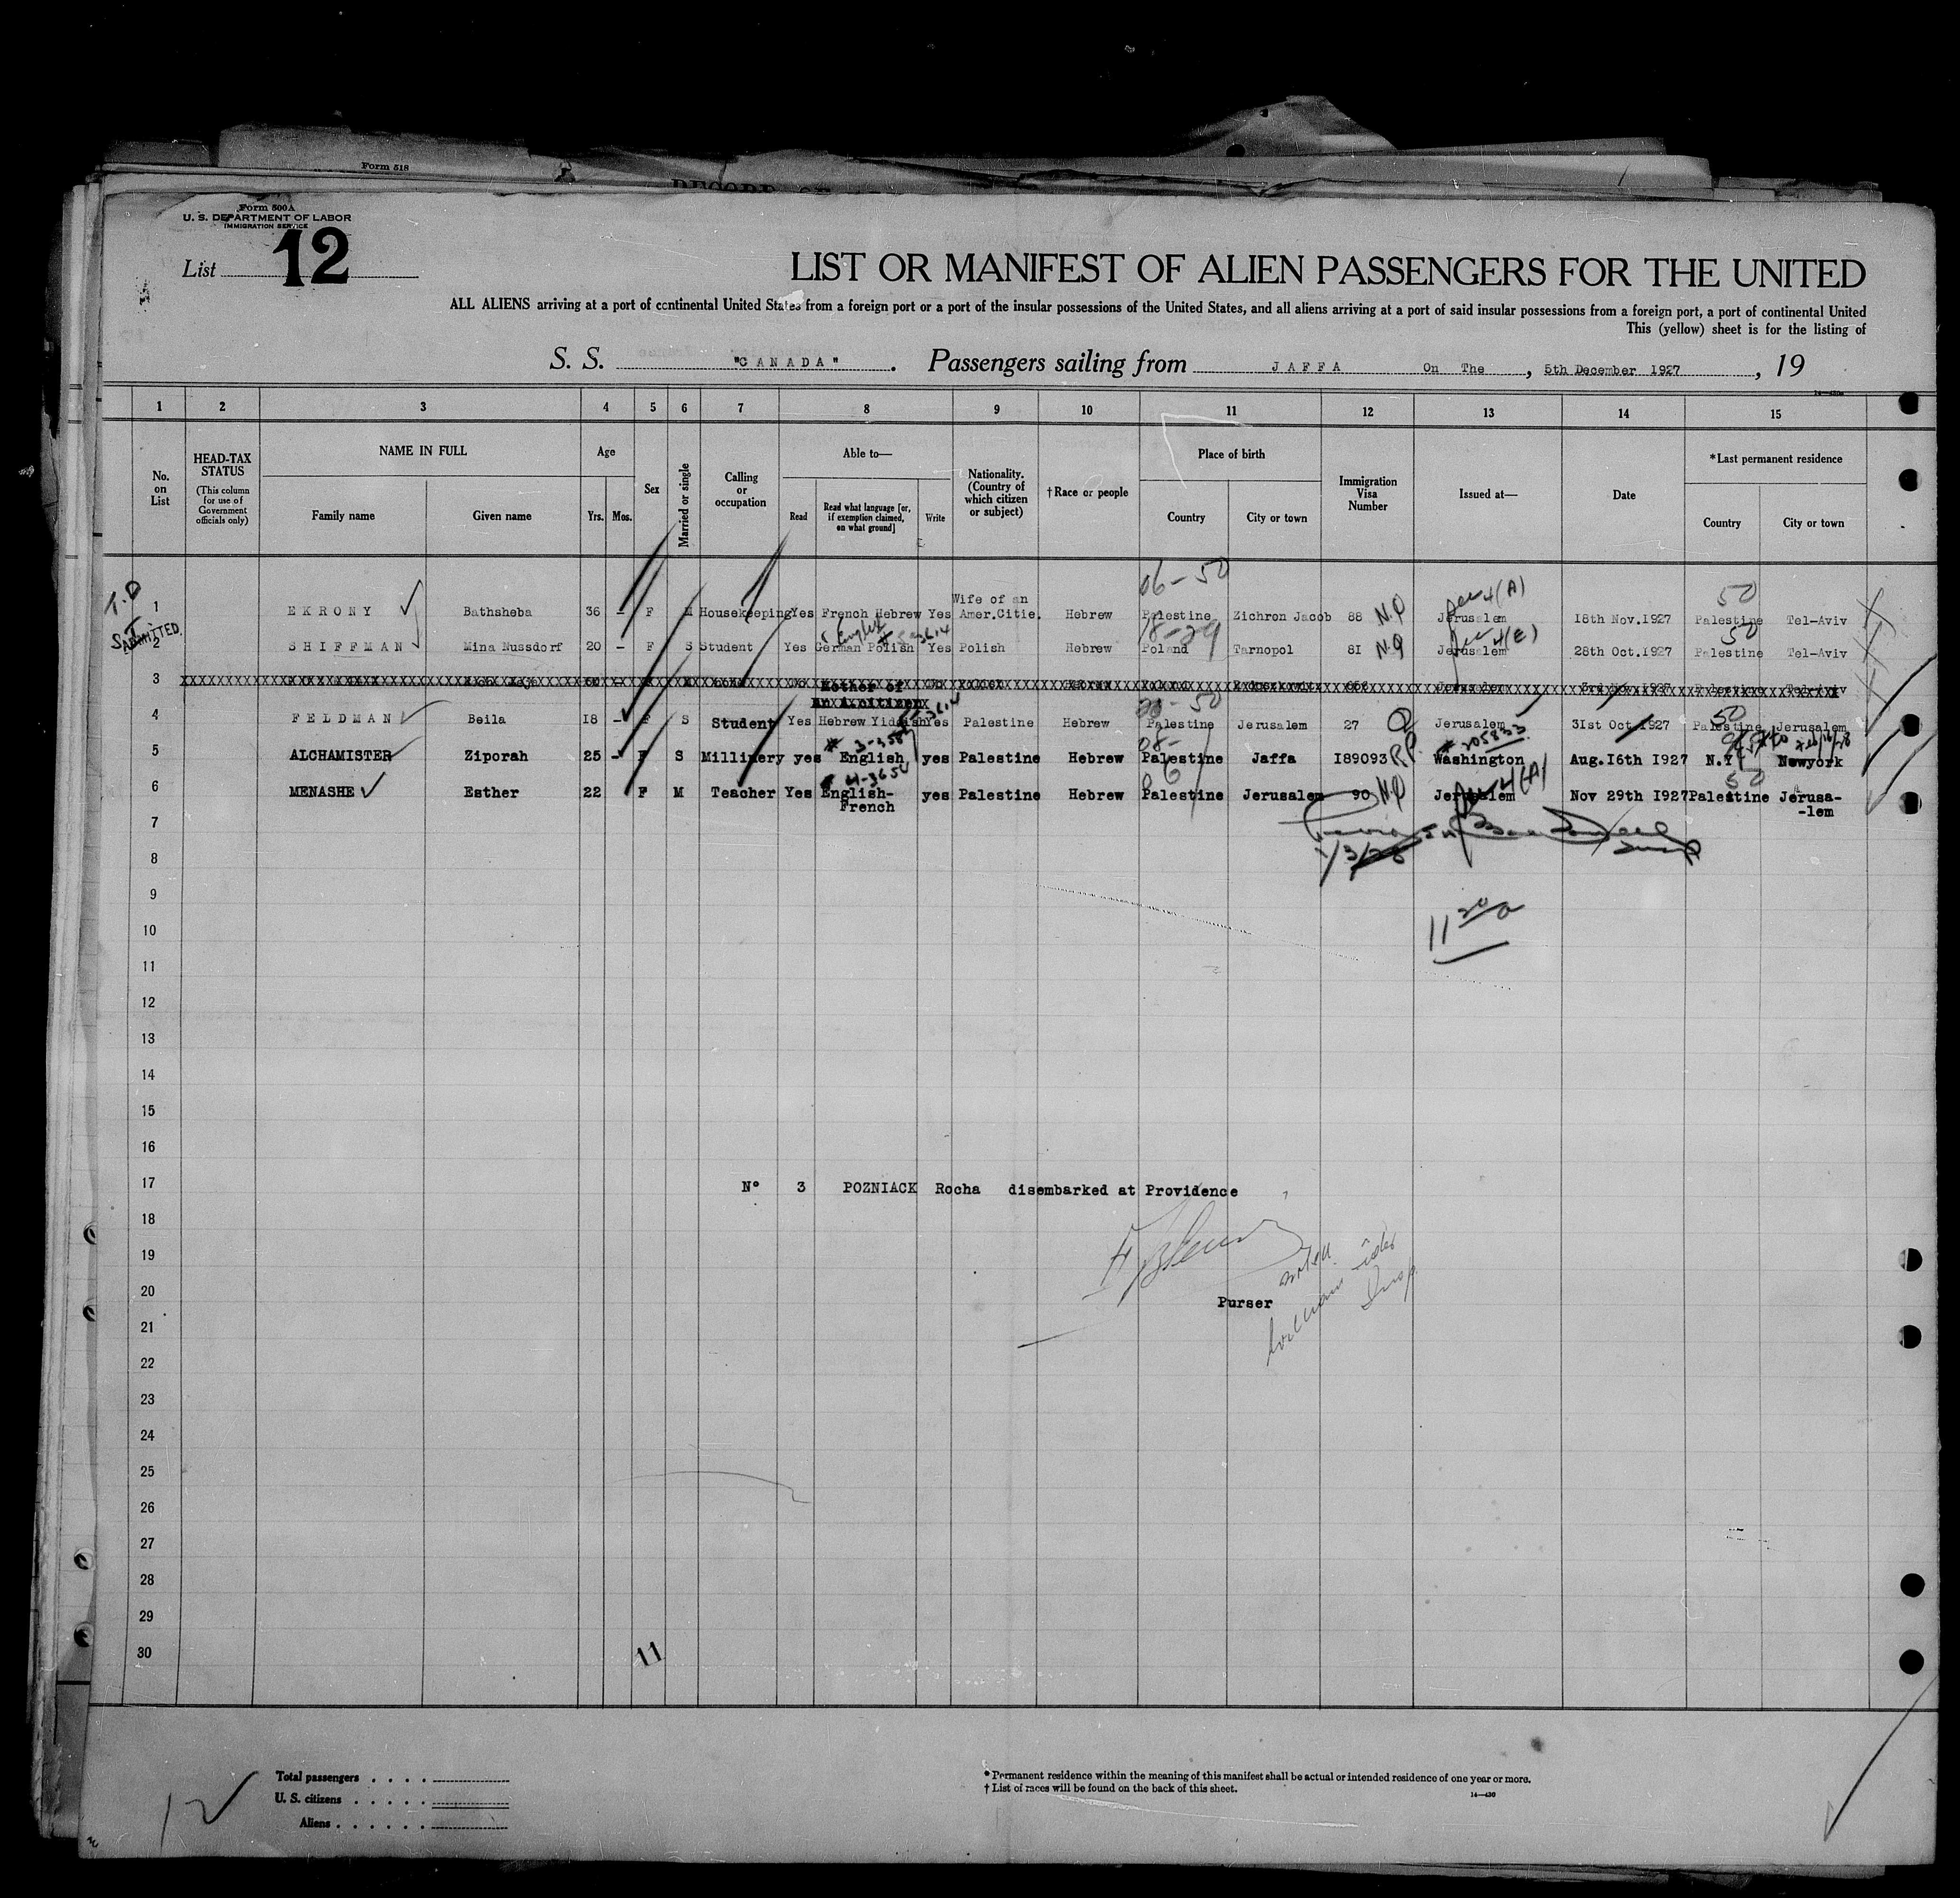 Form 518
RECORD OF
Form 500A
U. S. DEPARTMENT OF LABOR
IMMIGRATION SERVICE
List 12
LIST OR MANIFEST OF ALIEN PASSENGERS FOR THE UNITED
ALL ALIENS arriving at a port of continental United States from a foreign port or a port of the insular possessions of the United States, and all aliens arriving at a port of said insular possessions from a foreign port, a port of continental United
This (yellow) sheet is for the listing of
S. S. "CANADA". Passengers sailing from JAFFA On The, 5th December 1927, 19
1 2 3 4 5 6 7 8 9 10 11 12 13 14 15
No. on List
HEAD-TAX STATUS (This column for use of Government officials only)
NAME IN FULL
Family name Given name
Age
Yrs. Mos.
Sex
Married or single
Calling or occupation
Able to—
Read Read what language [or, if exemption claimed, on what ground] Write
Nationality. (Country of which citizen or subject)
†Race or people
Place of birth
Country City or town
Immigration Visa Number
Issued at—
Date
*Last permanent residence
Country City or town
06-50 50
1 EKRONY Bathsheba 36 - F M Housekeeping Yes French Hebrew Yes Wife of an Amer.Citie. Hebrew Palestine Zichron Jacob 88 N.P Jerusalem 18th Nov.1927 Palestine Tel-Aviv
ADMITTED
English 18-29 50
2 SHIFFMAN Mina Nussdorf 20 - F S Student Yes German Polish Yes Polish Hebrew Poland Tarnopol 81 Jerusalem 28th Oct.1927 Palestine Tel-Aviv
3
Mother of
An A.citizen
50 50
4 FELDMAN Beila 18 - F S Student Yes Hebrew Yiddish Yes Palestine Hebrew Palestine Jerusalem 27 Jerusalem 31st Oct 1927 Palestine Jerusalem
5 ALCHAMISTER Ziporah 25 - F S Millinery yes English yes Palestine Hebrew Palestine Jaffa I89093 R.P. Washington Aug.16th 1927 N.Y. Newyork
6 MENASHE Esther 22 F M Teacher Yes English-French yes Palestine Hebrew Palestine Jerusalem 90 N.P Jerusalem Nov 29th 1927 Palestine Jerusa-lem
7
1/3/28
8
9
11 20 a
10
11
12
13
14
15
16
17 N° 3 POZNIACK Rocha disembarked at Providence
18
19
20 Purser
21
22
23
24
25
26
27
28
29
30 11
12
Total passengers . . . .
U. S. citizens . . . . .
Aliens . . . . . .
* Permanent residence within the meaning of this manifest shall be actual or intended residence of one year or more.
† List of races will be found on the back of this sheet.
14—430